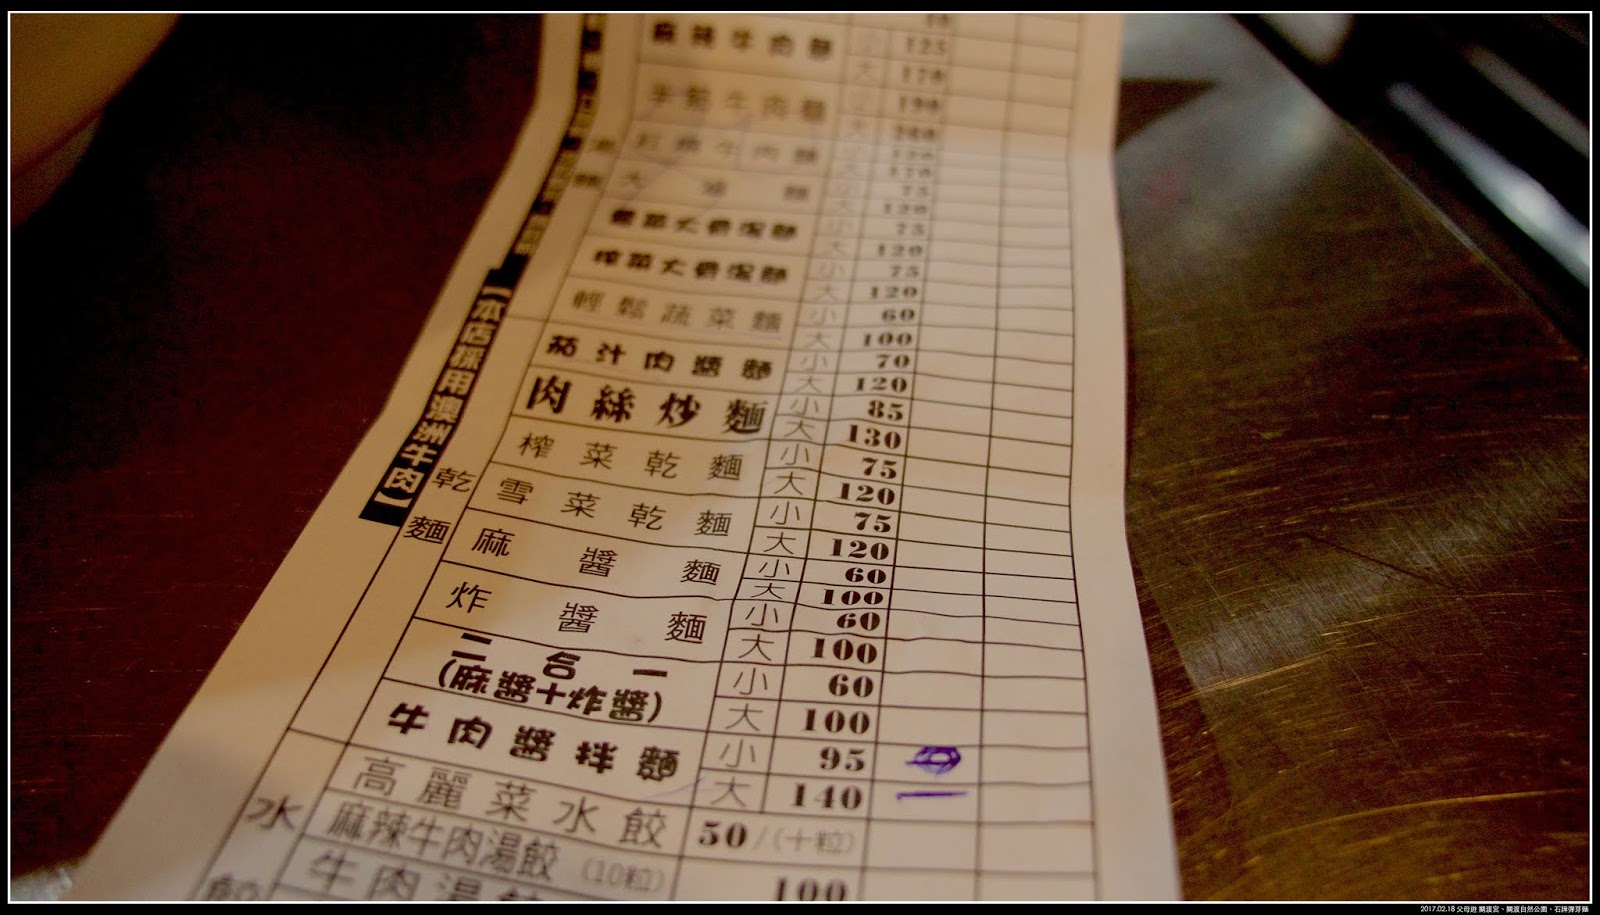 麻辣牛肉麵 小 125
大 170
190
大 260
紅燒牛肉麵
大 170
小 75
大 120
小 75
大 120
榨菜大骨湯麵 小 75
大 120
輕鬆蔬菜麵 小 60
大 100
茄汁肉醬麵 小 70
大 120
肉絲炒麵 小 85
大 130
榨菜乾麵 小 75
大 120
雪菜乾麵 小 75
大 120
麻醬麵 小 60
大 100
炸醬麵 小 60
大 100
二合一 小 60
(麻醬+炸醬) 大 100
牛肉醬拌麵 小 95
大 140
高麗菜水餃 50/(十粒)
麻辣牛肉湯餃(10粒) 100
牛肉湯餃
湯麵
乾麵
水餃
【本店採用澳洲牛肉】
2017.02.18 父母遊 關渡宮、關渡自然公園、石牌彈芽麵